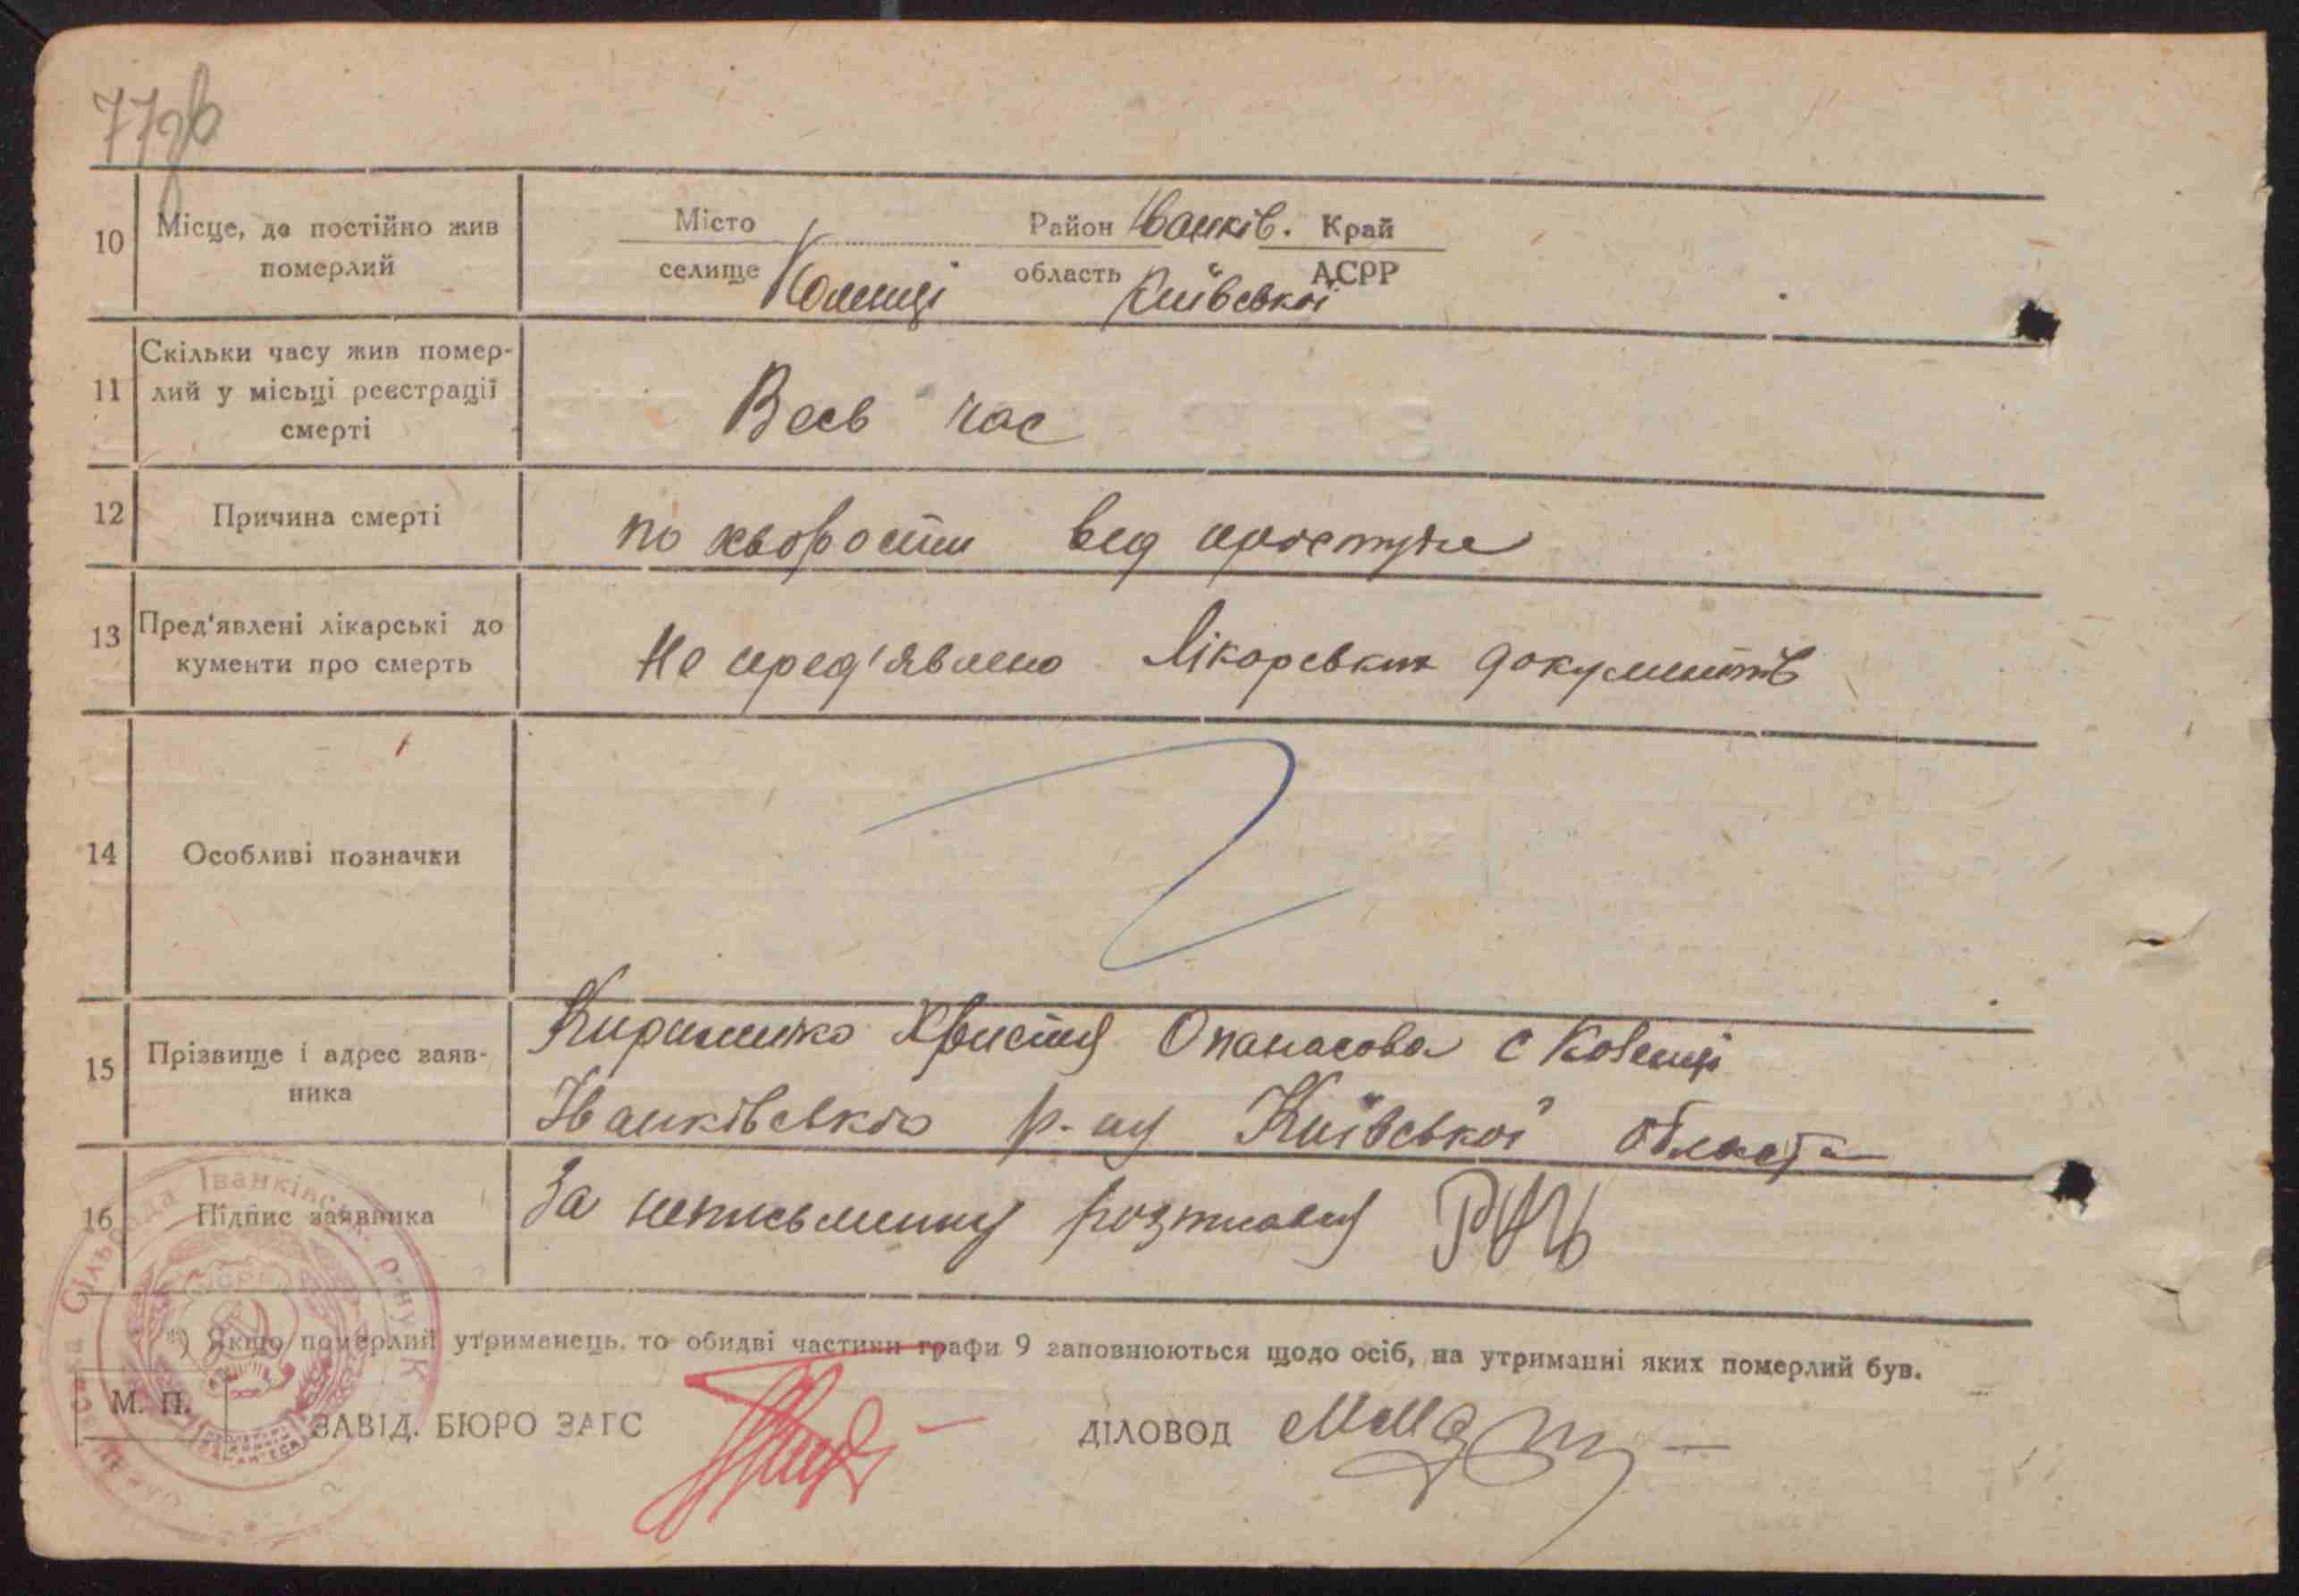 77зв
10 Місце, де постійно жив померлий
Місто Район Іванків. Край
селище Коленці область Київської АСРР
11 Скільки часу жив померлий у місьці реєстрації смерті
Весь час
12 Причина смерті
по хворости вед простуди
13 Пред'явлені лікарські документи про смерть
Не пред'явлено лікарських документів
14 Особливі позначки
15 Прізвище і адрес заявника
Кириленко Христя Опанасова с Коленці
Іванківсько р-ну Київської области
16 Підпис заявника
За неписьменну розписався
*) Якщо померлий утриманець, то обидві частини графи 9 заповнюються щодо осіб, на утриманні яких померлий був.
М. П.
ЗАВІД. БЮРО ЗАГС ДІЛОВОД
Сільрада Іванківськ. р-ну К